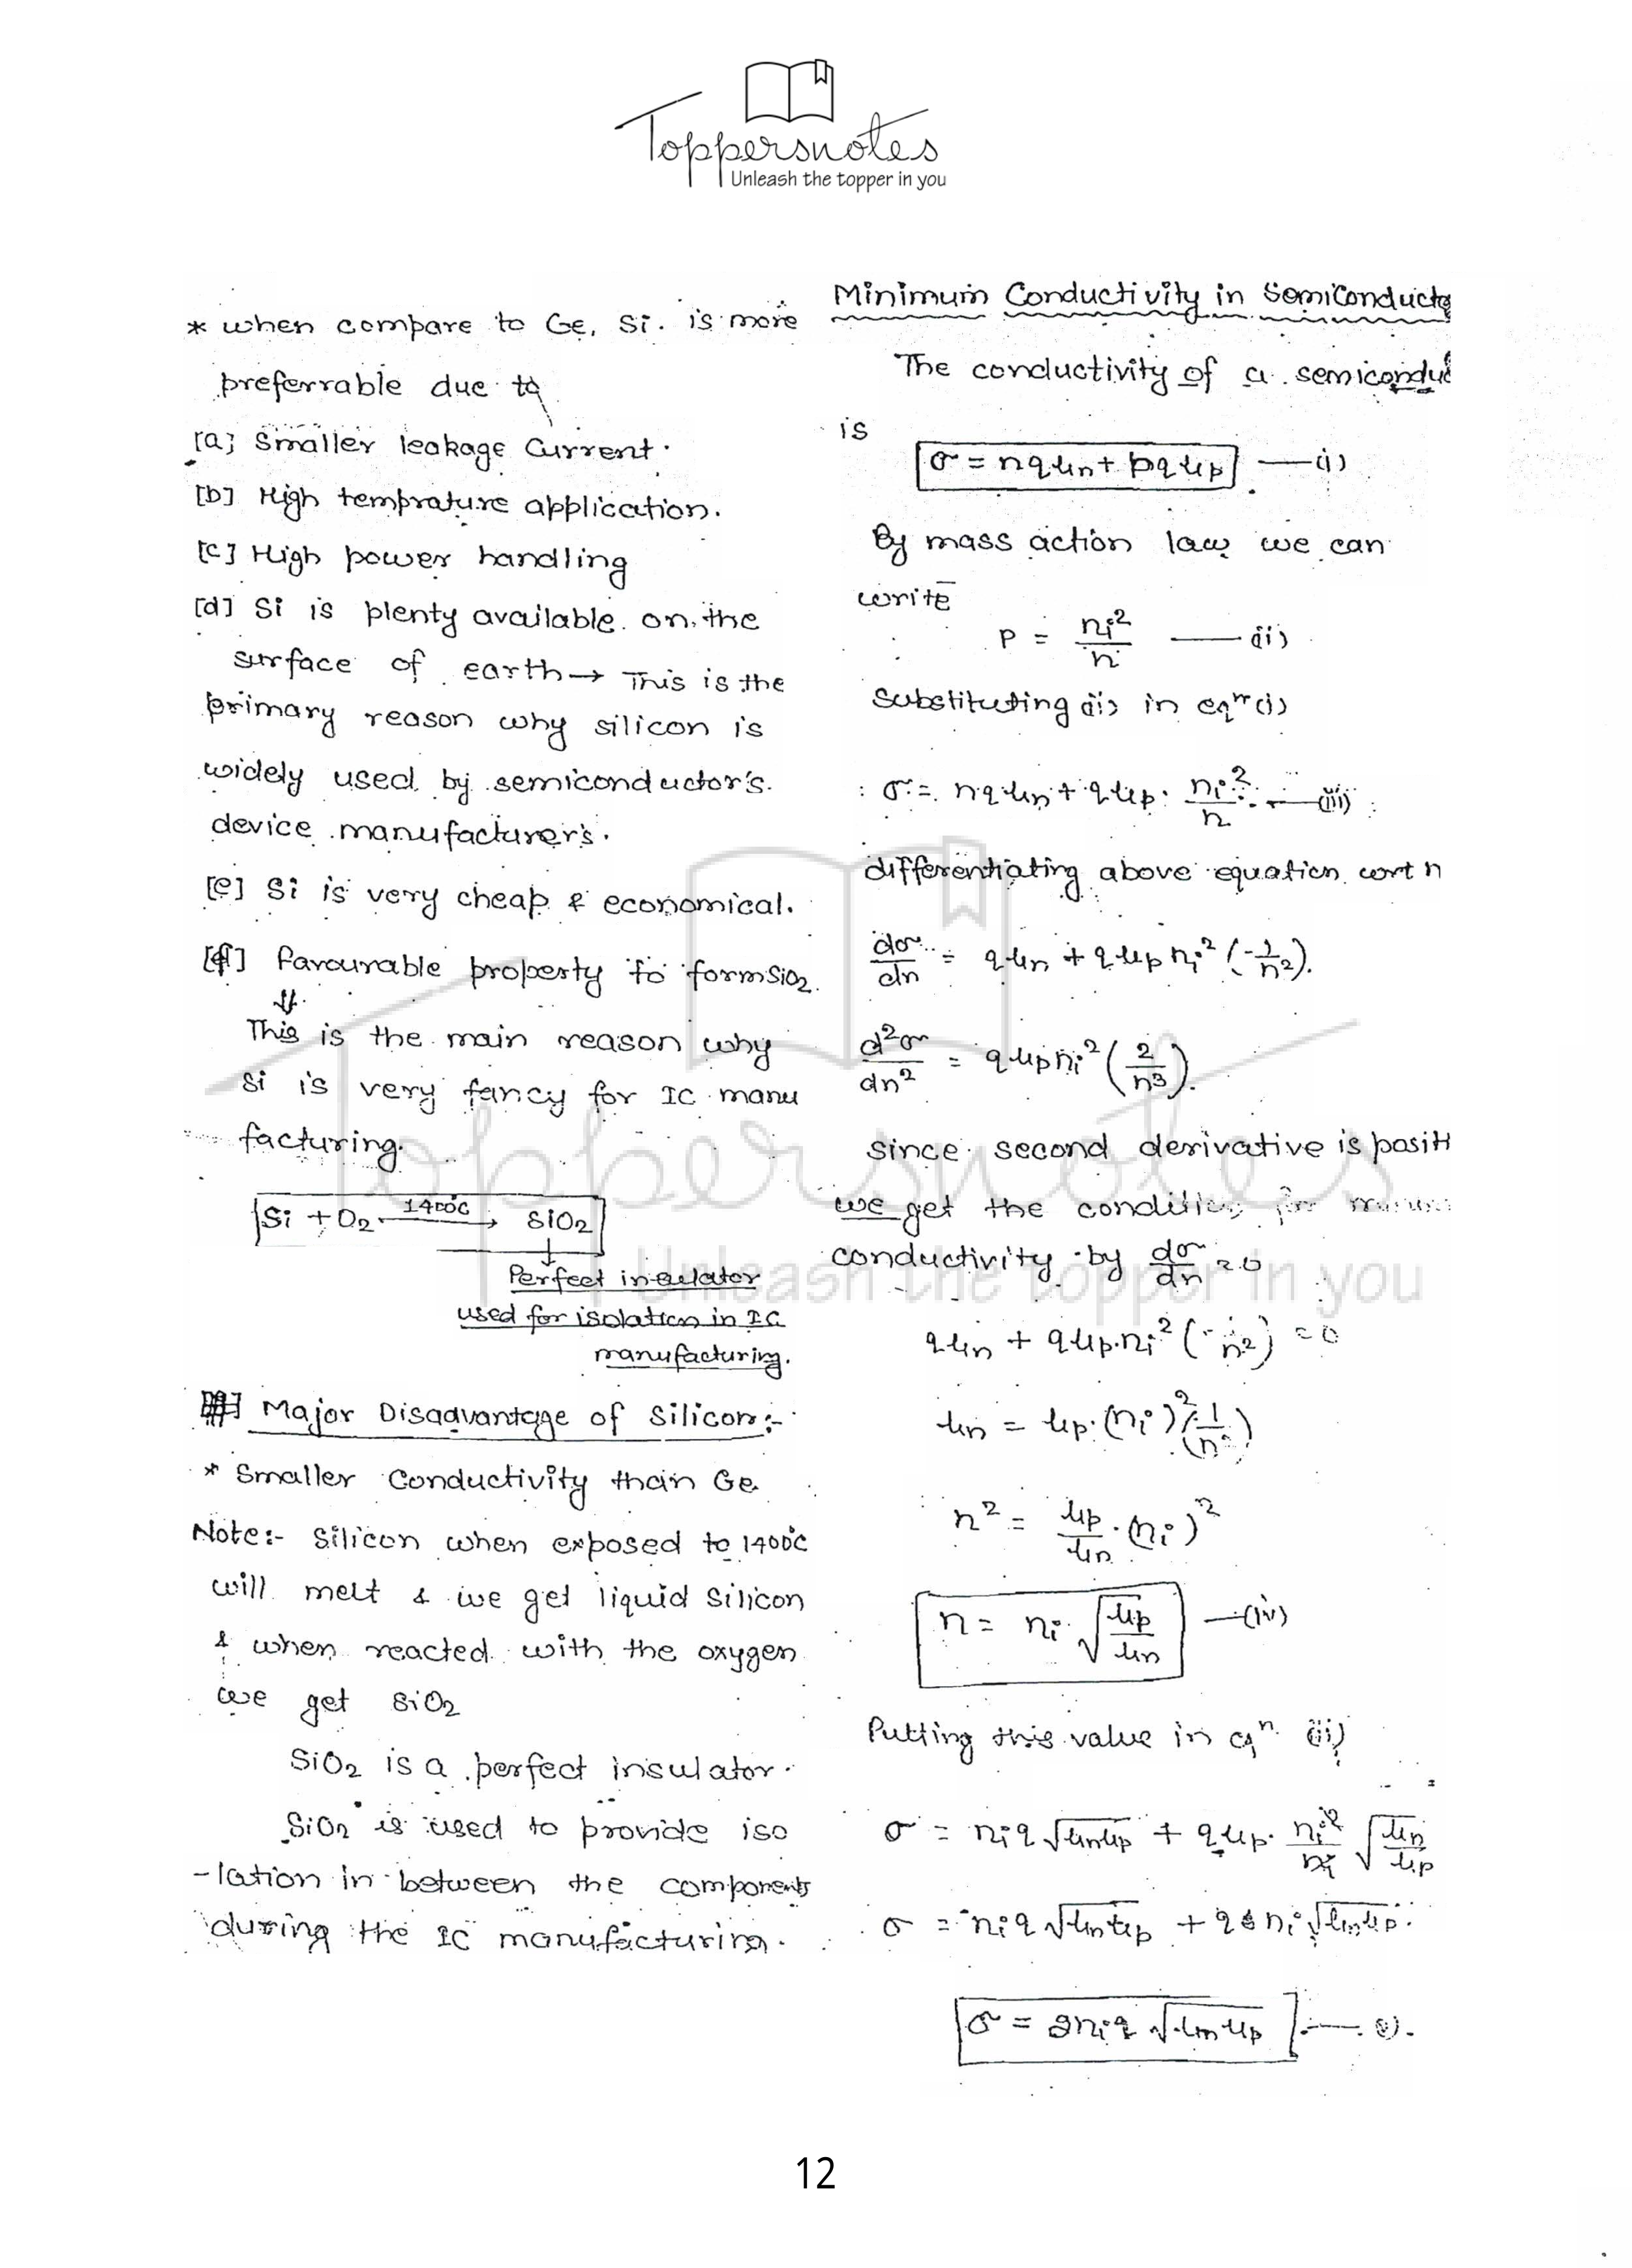 Toppersnotes
Unleash the topper in you
* when compare to Ge, Si. is more
preferrable due to
[a] Smaller leakage Current.
[b] High temprature application.
[c] High power handling
[d] Si is plenty available on the
surface of earth → This is the
primary reason why silicon is
widely used by semiconductor's
device manufacturer's.
[e] Si is very cheap & economical.
[f] favourable property to form SiO2.
⇓
This is the main reason why
Si is very fancy for IC manu
facturing.
Si + O2 1400°C → SiO2
↓
Perfect insulator
used for isolation in IC
manufacturing.
Major Disadvantage of Silicon:-
* Smaller Conductivity than Ge
Note:- Silicon when exposed to 1400°C
will melt & we get liquid Silicon
& when reacted with the oxygen
we get SiO2
SiO2 is a perfect insulator.
SiO2 is used to provide iso
-lation in between the components
during the IC manufacturing.
Minimum Conductivity in Semiconducto
The conductivity of a semiconduc
is
σ = nqμn + pqμp —(i)
By mass action law we can
write
P = ni²/n —(ii)
Substituting (ii) in eqn (i)
σ = nqμn + qμp. ni²/n —(iii)
differentiating above equation wrt n
dσ/dn = qμn + qμp ni² (-1/n²).
d²σ/dn² = qμp ni² (2/n³).
since second derivative is positi
we get the condition for
conductivity by dσ/dn = 0
qμn + qμp.ni² (-1/n²) = 0
μn = μp.(ni)² (1/n²)
n² = μp/μn . (ni)²
n = ni √(μp/μn) —(iv)
Putting this value in eqn (iii)
σ = niq √(μnμp) + qμp. ni²/ni √(μn/μp)
σ = niq √(μnμp) + q ni √(μnμp).
σ = 2niq √(μnμp) —(v).
12